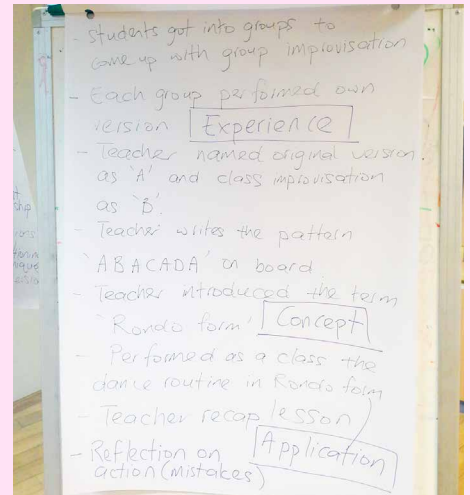 - Students got into groups to
come up with group improvisation
- Each group performed own
version Experience
- Teacher named original version
as 'A' and class improvisation
as 'B'.
- Teacher writes the pattern
'ABACADA' on board
- Teacher introduced the term
'Rondo form' Concept
- Performed as a class the
dance routine in Rondo form
- Teacher recap lesson
- Reflection on Application
action (mistakes)